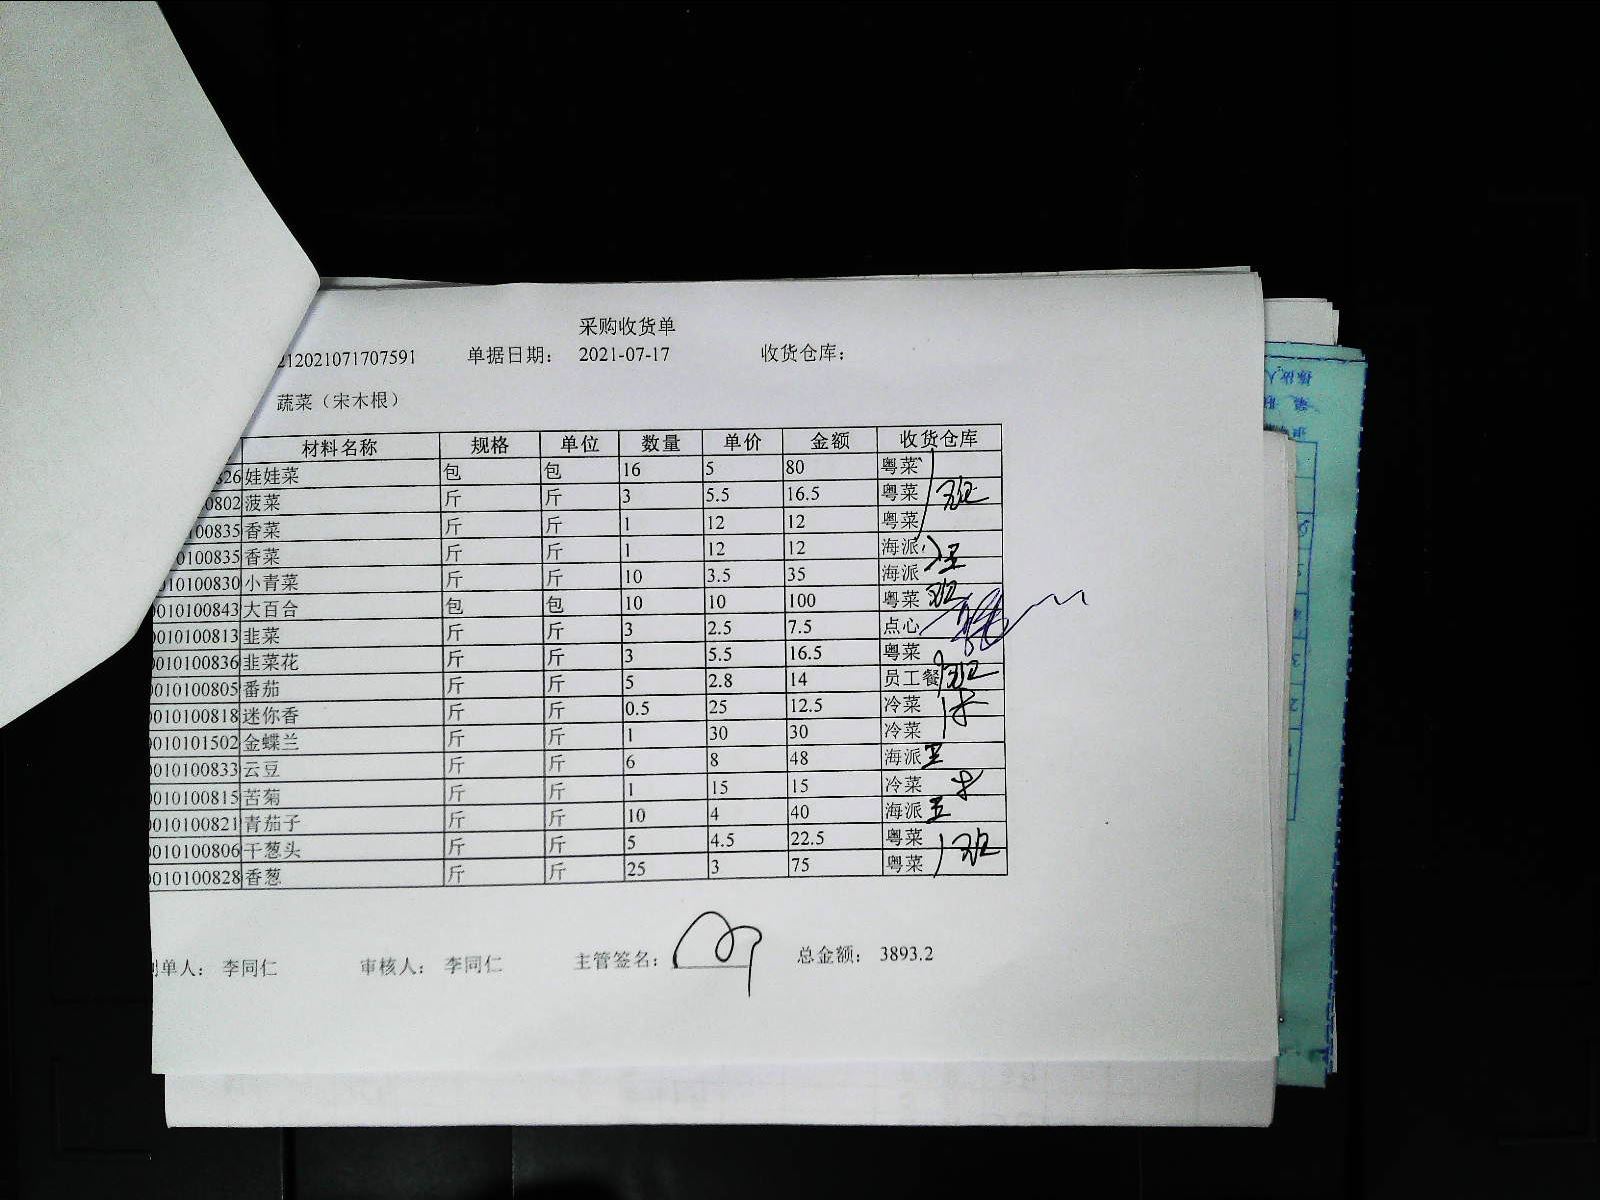 采购收货单
212021071707591 单据日期： 2021-07-17 收货仓库：
蔬菜（宋木根）
材料名称 规格 单位 数量 单价 金额 收货仓库
826 娃娃菜 包 包 16 5 80 粤菜
0802 菠菜 斤 斤 3 5.5 16.5 粤菜
0100835 香菜 斤 斤 1 12 12 粤菜
0100835 香菜 斤 斤 1 12 12 海派
010100830 小青菜 斤 斤 10 3.5 35 海派
0010100843 大百合 包 包 10 10 100 粤菜
0010100813 韭菜 斤 斤 3 2.5 7.5 点心
0010100836 韭菜花 斤 斤 3 5.5 16.5 粤菜
0010100805 番茄 斤 斤 5 2.8 14 员工餐
0010100818 迷你香 斤 斤 0.5 25 12.5 冷菜
0010101502 金蝶兰 斤 斤 1 30 30 冷菜
0010100833 云豆 斤 斤 6 8 48 海派 王
0010100815 苦菊 斤 斤 1 15 15 冷菜
0010100821 青茄子 斤 斤 10 4 40 海派 王
0010100806 干葱头 斤 斤 5 4.5 22.5 粤菜
0010100828 香葱 斤 斤 25 3 75 粤菜
制单人： 李同仁 审核人： 李同仁 主管签名： 总金额： 3893.2